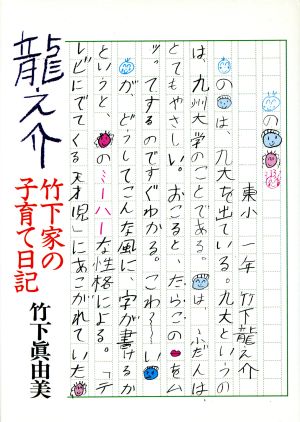 の
東小 一年 竹下龍之介
のは、九大を出ている。九大というの
は、九州大学のことである。は、ふだんは
とてもやさしい。おこると、たらこのをム
ッってするのですぐわかる。こわ〜〜い
が、どうしてこんな風に、字が書けるか
というと、のミーハーな性格による。「テ
レビにでてくる天才児」にあこがれていた
龍之介
竹下家の
子育て日記
竹下眞由美